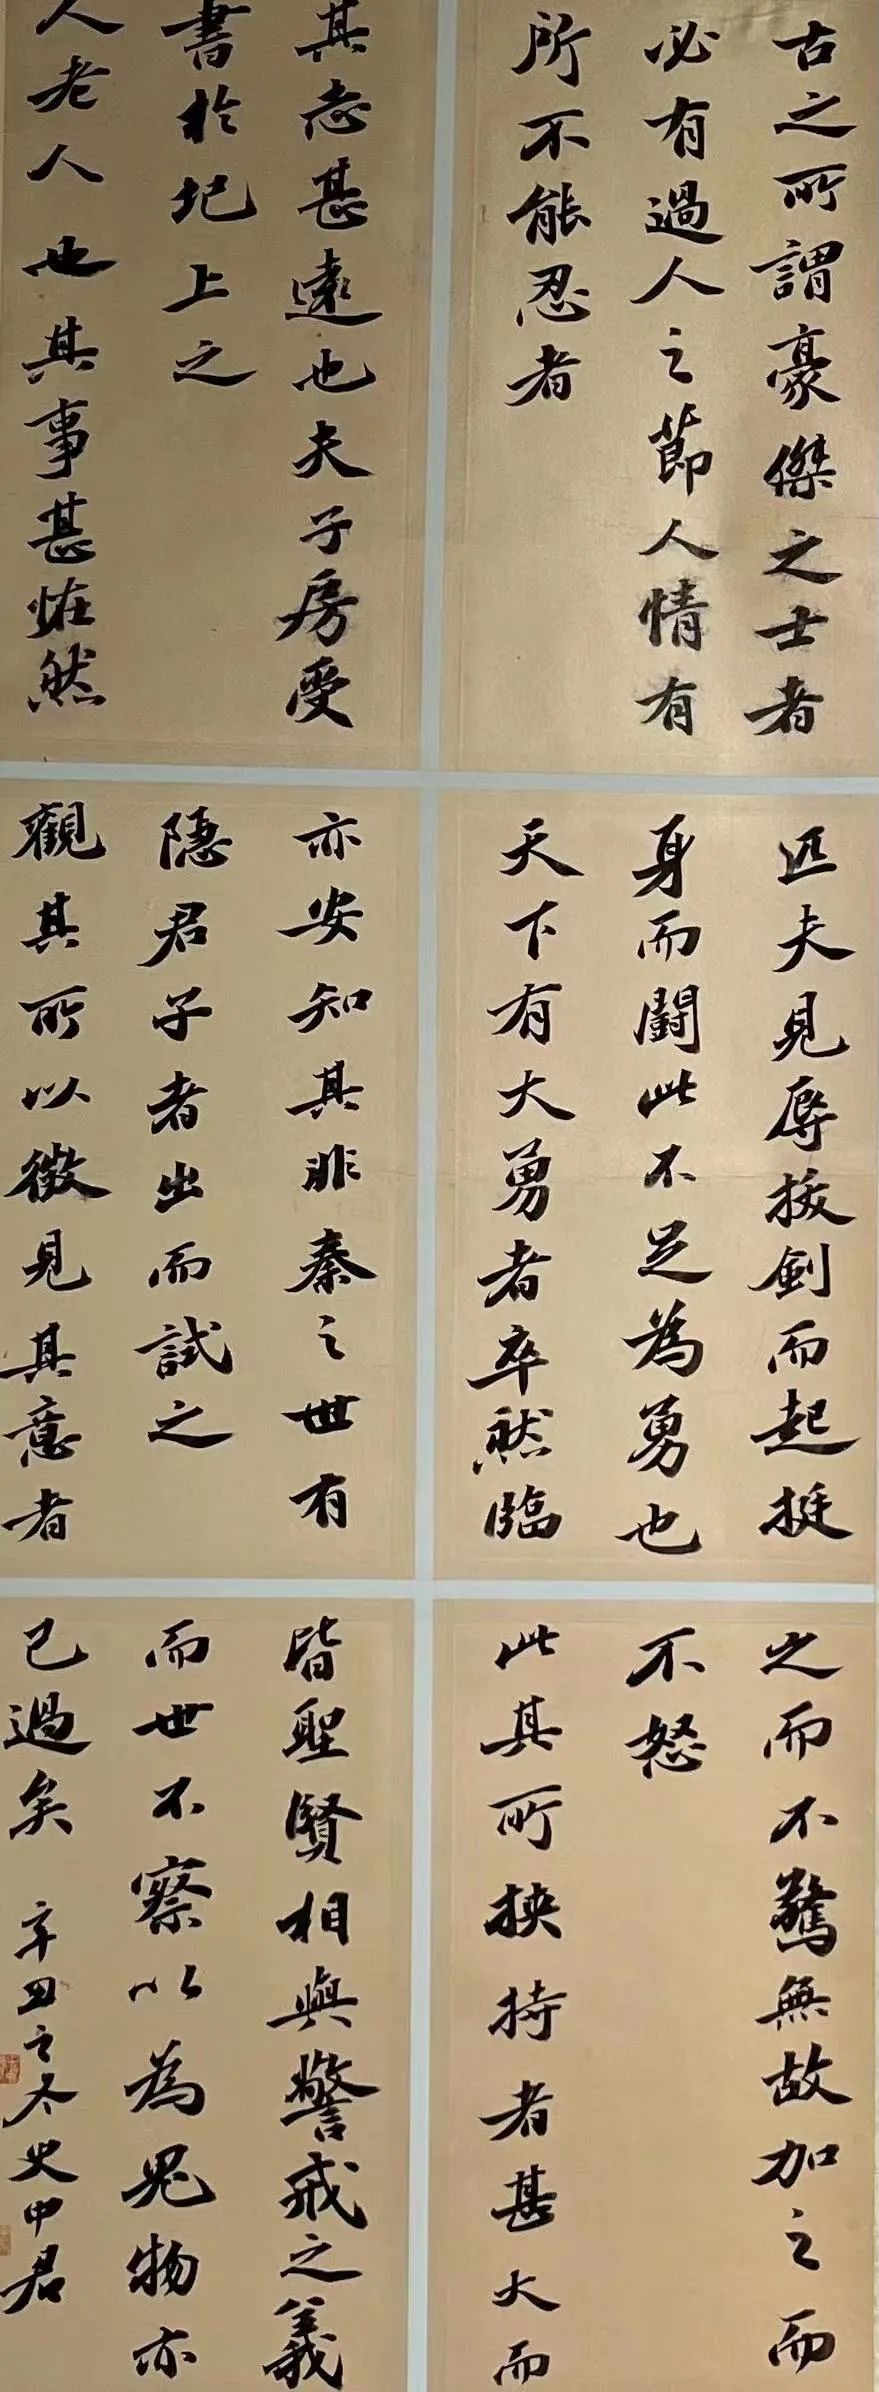 古之所謂豪傑之士者
必有過人之節人情有
所不能忍者
匹夫見辱拔劍而起挺
身而鬪此不足為勇也
天下有大勇者卒然臨
之而不驚無故加之而
不怒
此其所挾持者甚大而
其志甚遠也夫子房受
書於圯上之
人老人也其事甚怪然
亦安知其非秦之世有
隱君子者出而試之
觀其所以微見其意者
皆聖賢相與警戒之義
而世不察以為鬼物亦
已過矣 辛丑之冬 君